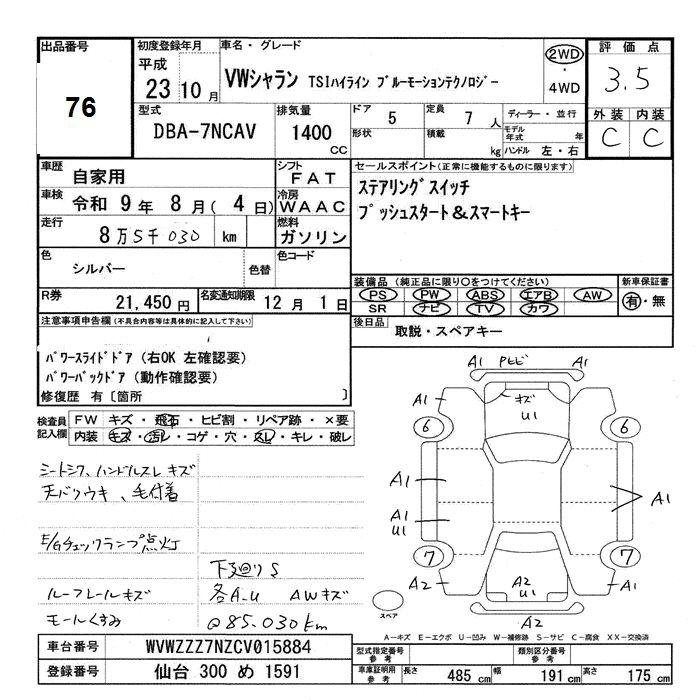 出品番号
76
初度登録年月
平成
23 10 月
車名・グレード
VWシャラン TSIハイライン ブルーモーションテクノロジー
2WD
・
4WD
評価点
3.5
外装 内装
C C
型式
DBA-7NCAV
排気量
1400
CC
ドア 5
形状
定員 7 人
積載 kg
ディーラー・並行
モデル年式 年
ハンドル 左・右
車歴
自家用
シフト
FAT
車検
令和 9 年 8 月( 4 日)
冷房
WAAC
走行
8万5千030 km
燃料
ガソリン
色
シルバー
色替
色コード
R券
21,450円
名変通知期限
12 月 1 日
セールスポイント(正常に機能するものに限ります)
ステアリングスイッチ
プッシュスタート&スマートキー
装備品 (純正品に限り○をつけてください)
PS PW ABS エアB AW
SR ナビ TV カワ
新車保証書
有・無
後日品
取説・スペアキー
注意事項申告欄(不具合内容等は具体的に記入して下さい)
パワースライドドア (右OK 左確認要)
パワーバックドア (動作確認要)
修復歴 有〔箇所 〕
検査員記入欄
FW キズ・飛石・ヒビ割・リペア跡・×要
内装 キズ・汚レ・コゲ・穴・スレ・キレ・破レ
シートシワ、ハンドルスレ キズ
天バリウキ、毛付着
E/Gチェックランプ点灯
下廻りS
ルーフレールキズ
各A-U AWキズ
モールくすみ
@85.030km
A1 Pヒビ A1
A1
キズ
U1
A1
6
6
A1
A1
A1
U1
7
7
A2
A2
U1
A2
A2
スペア
A-キズ E-エクボ U-凹み W-補修跡 S-サビ C-腐食 XX-交換済
車台番号
WVWZZZ7NZCV015884
登録番号
仙台 300 め 1591
型式指定番号
参考
類別区分番号
参考
車庫証明用
参考
長さ 485 cm
幅 191 cm
高さ 175 cm